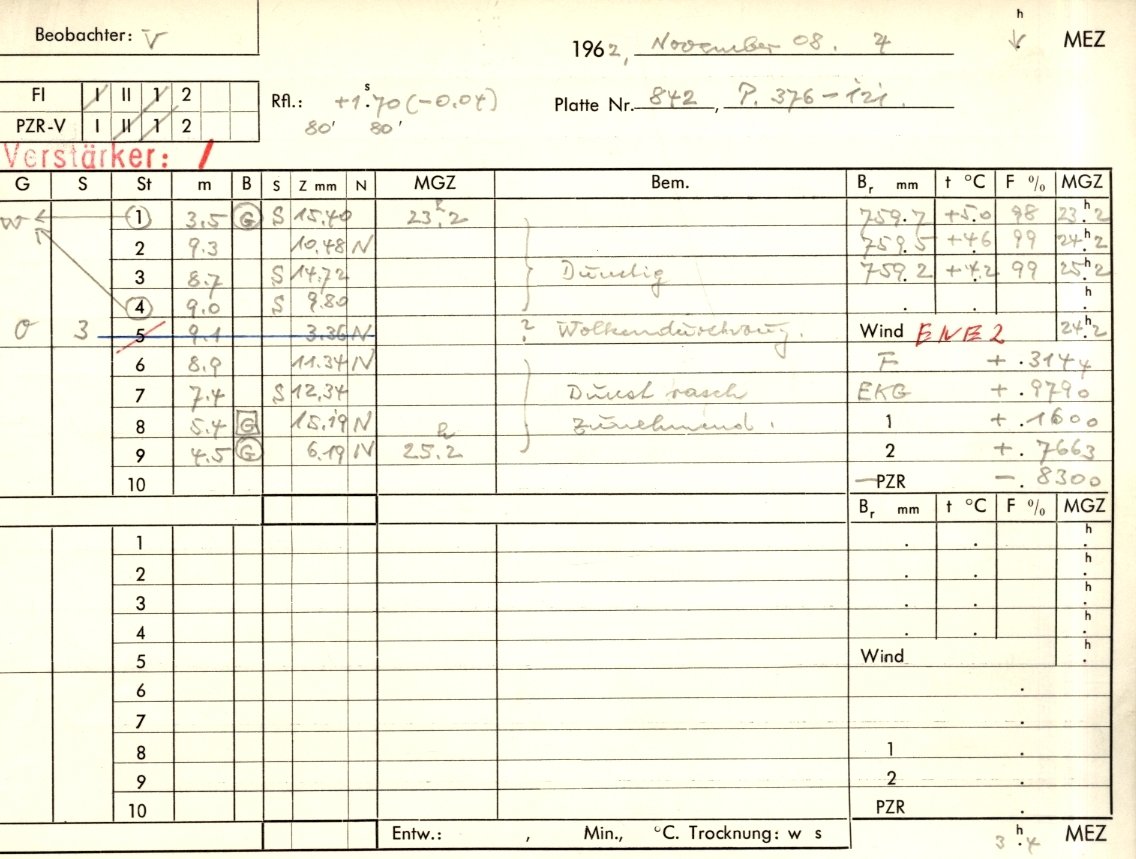 h
Beobachter: V
1962, November 08. 4 MEZ
FI I II 1 2
Rfl.: +1.ˢ70 (-0.04)
Platte Nr. 842, P. 376-121.
PZR-V I II 1 2
80' 80'
Verstärker: /
G S St m B S Z mm N MGZ Bem. Br mm t °C F % MGZ
w 1 3.5 G S 15.40 23.ʰ2 759.7 +5.0 98 23.ʰ2
2 9.3 10.48 N 759.5 +4.6 99 24.ʰ2
3 8.7 S 14.72 Dunstig 759.2 +4.2 99 25.ʰ2
4 9.0 S 9.80 . . h .
0 3 5 9.1 3.36 N ? Wolkendurchzug. Wind ENE 2 24.ʰ2
6 8.9 11.34 N F + .3144
7 7.4 S 12.34 Dunst rasch EKG + .9790
8 5.4 G 15.19 N zunehmend. 1 + .1600
9 4.5 G 6.19 N 25.ʰ2 2 + .7663
10 -PZR - .8300
Br mm t °C F % MGZ
1 . . h .
2 . . h .
3 . . h .
4 . . h .
5 Wind h .
6 .
7 .
8 1 .
9 2 .
10 PZR .
Entw.: , Min., °C. Trocknung: w s 3.ʰ4 MEZ